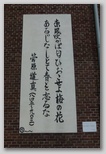 東風吹かば匂ひおこせよ梅の花
あるじなしとて春を忘るな
菅原道真